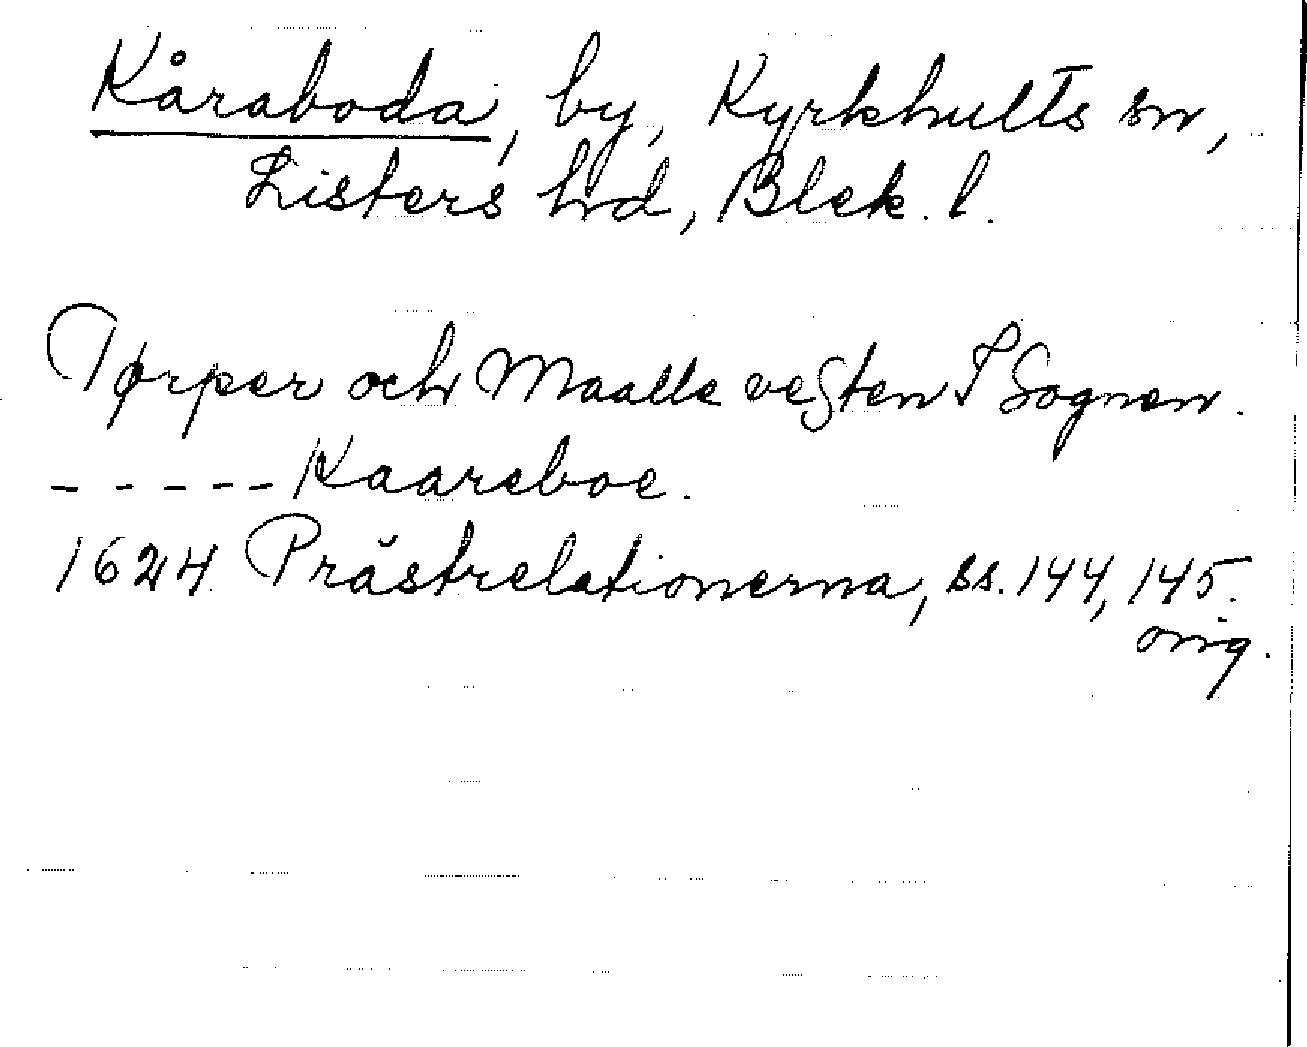 Kåraboda, by, Kyrkhults sn,
Listers hrd, Blek. l.
Tørper och Maalle vesten I Sognen.
- - - - - Kaareboe.
1624 Prästrelationerna, ss. 144, 145.
orig.